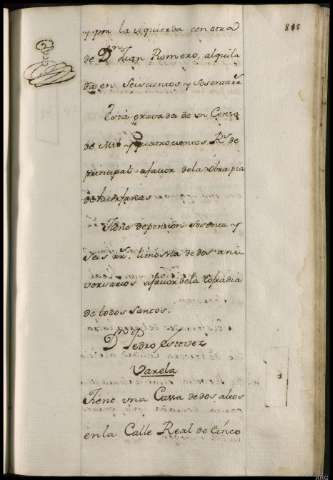 y por la izquierda con otra
de Dn. Juan Romero, alquila
da en seiscientos y sesenta rs.
Está gravada de un Censo
de Mil y quatrocientos Rs. de
principal a favor de la obra pia
de huerfanas
Tiene de pension sesenta y
seis rs. limosna de dos ani
versarios a favor de la Cofradia
de todos Santos.
Dn. Pedro Estevez
Varela
Tiene una Cassa de dos altos
en la Calle Real de cinco